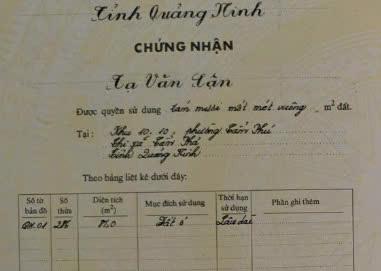 Tỉnh Quảng Ninh
CHỨNG NHẬN
Tạ Văn Tận
Được quyền sử dụng tám mươi mốt mét vuông m² đất.
Tại: Khu 10, 10, phường Cẩm Phú
Thị xã Cẩm Phả
Tỉnh Quảng Ninh
Theo bảng liệt kê dưới đây:
Số tờ bản đồ Số thửa Diện tích (m²) Mục đích sử dụng Thời hạn sử dụng Phần ghi thêm
Đất ở Lâu dài